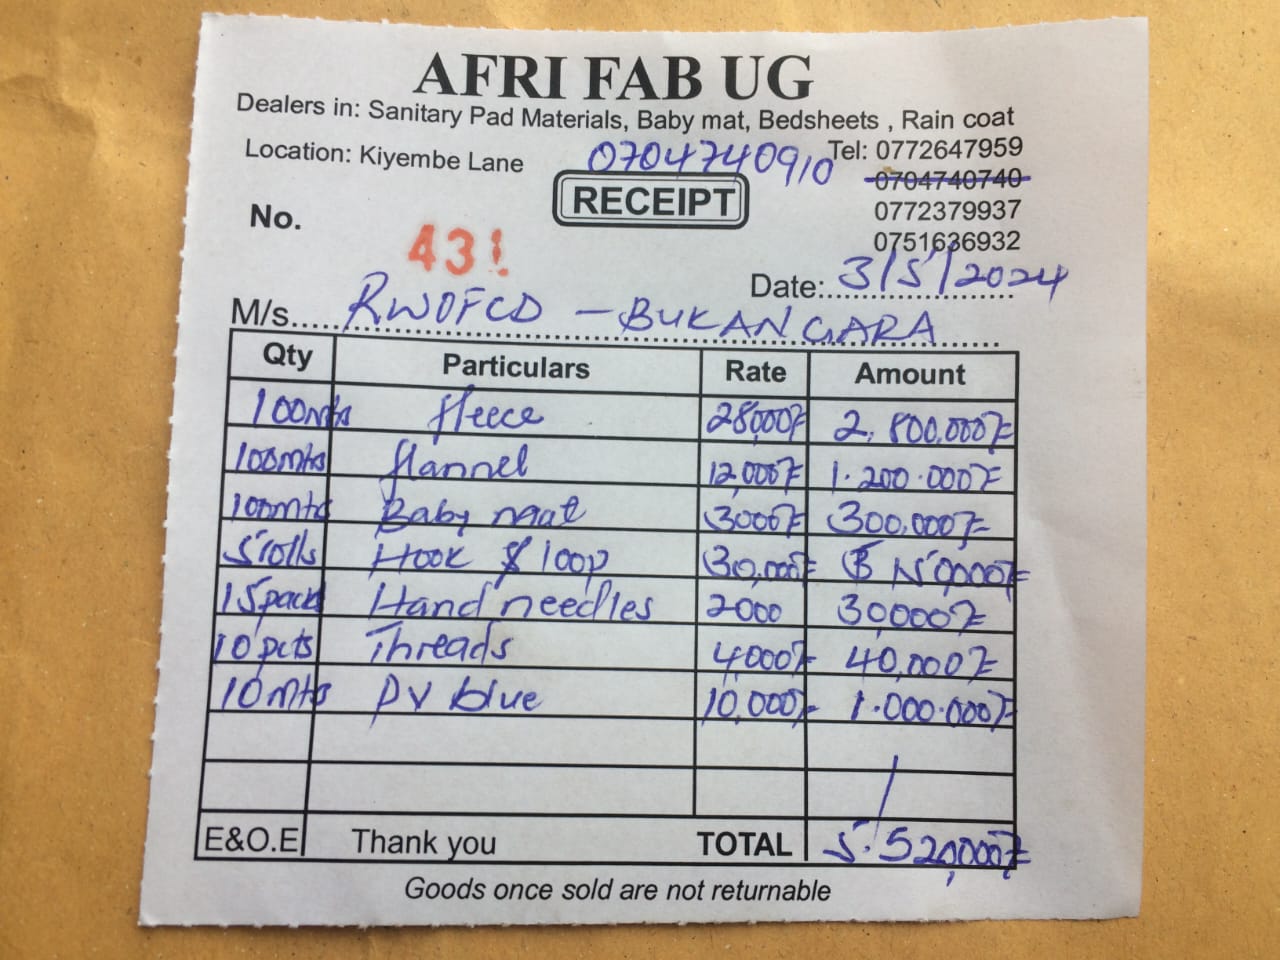 AFRI FAB UG
Dealers in: Sanitary Pad Materials, Baby mat, Bedsheets , Rain coat
Location: Kiyembe Lane 0704740910 Tel: 0772647959
0704740740
RECEIPT
0772379937
No. 431
0751636932
Date: 3/5/2024
M/s RWOFCD - BUKANGARA
Qty Particulars Rate Amount
100mts fleece 28,000/= 2,800,000/=
100mts flannel 12,000/= 1.200.000/=
100mts Baby mat 3000/= 300,000/=
5 rolls Hook $ loop 30,000/= 150000/=
15 pack Hand needles 2000 30,000/=
10 pcts Threads 4000/= 40,000/=
10 mts PV blue 10,000/= 1.000.000/=
E&O.E Thank you TOTAL 5.520,000/=
Goods once sold are not returnable